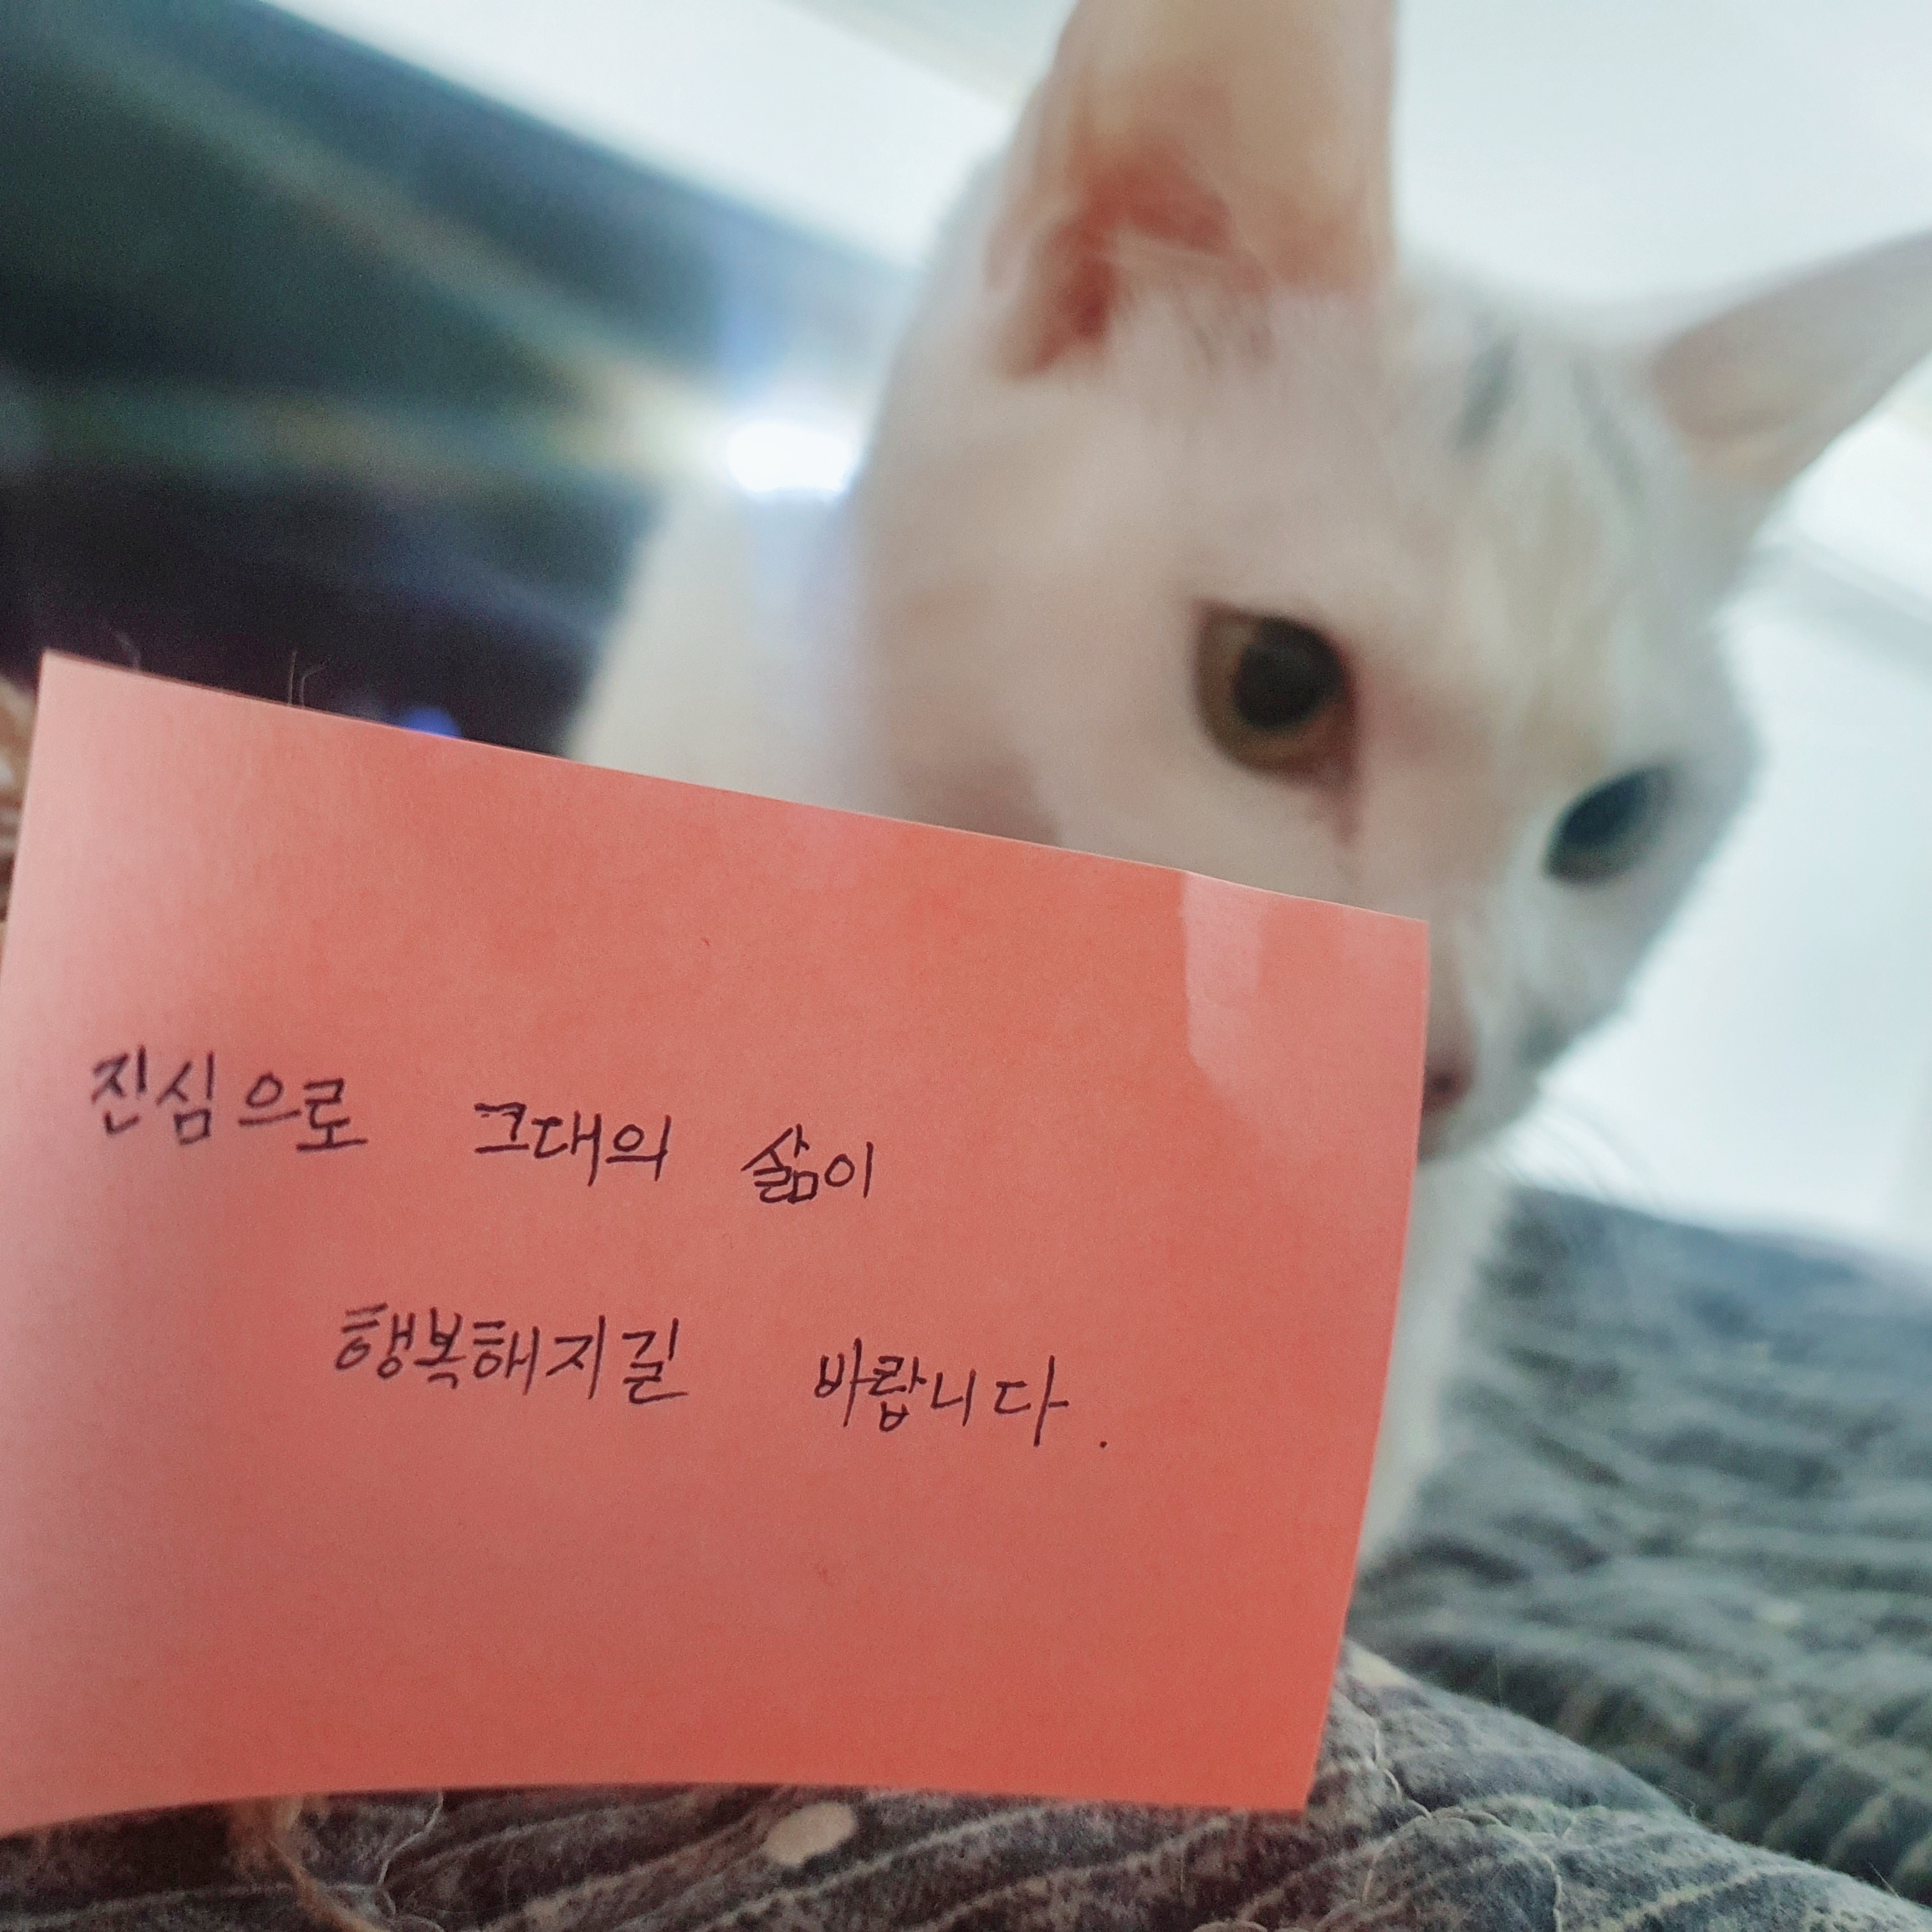 진심으로 그대의 삶이
행복해지길 바랍니다.